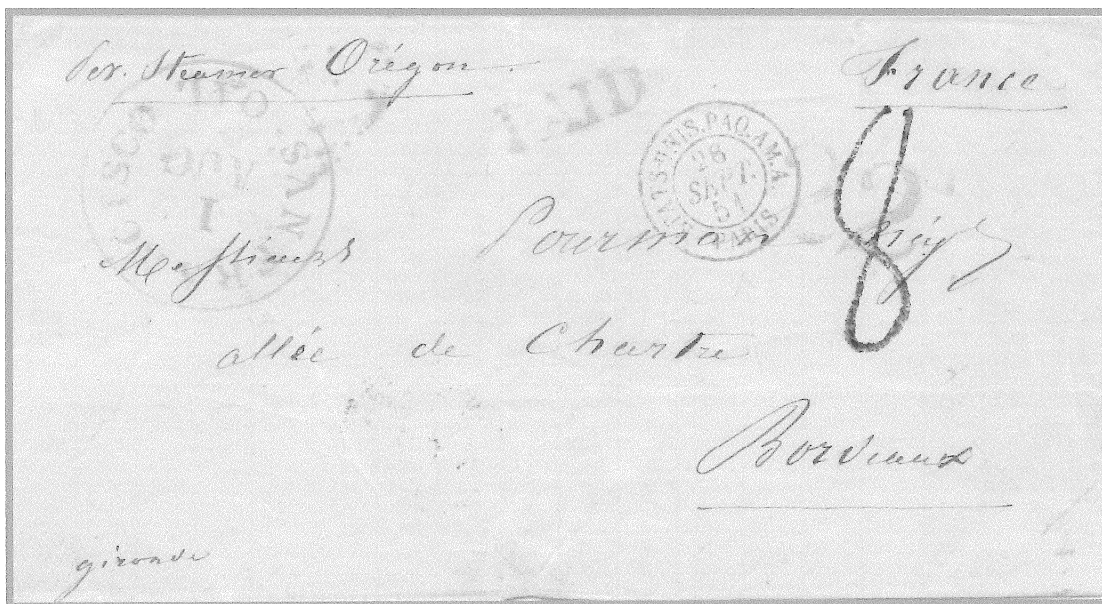 Per. Steamer Orégon
France
SAN FRANCISCO CAL.
AUG
1
PAID
ETATS-UNIS.PAQ.AM.A.
28
SEPT.
51
PARIS
8
Messieurs
allée de Chartre
Bordeaux
gironde